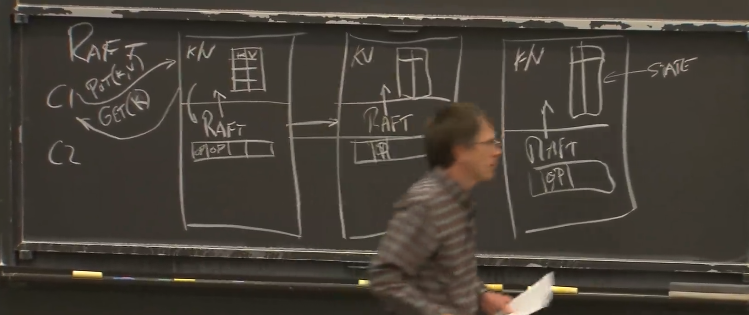 RAFT
C1
PUT(K,V)
GET(K)
C2
K/V
K V
RAFT
OP OP
KV
RAFT
K/V
STATE
RAFT
OP